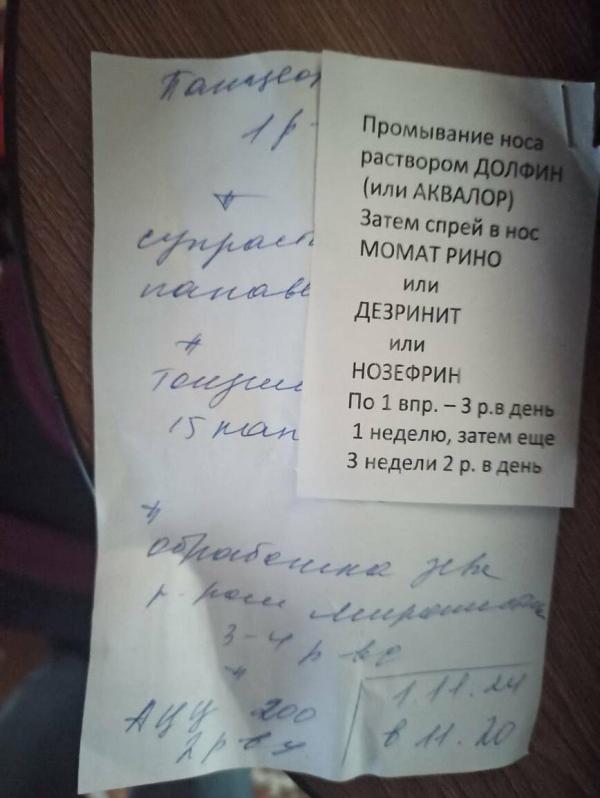 1 р-
супраст
Тонзил
15 кап
обработка
р-ром
3-4 р в д
АЦЦ 200
2 р в д.
1.11.24
в 11.20
Промывание носа
раствором ДОЛФИН
(или АКВАЛОР)
Затем спрей в нос
МОМАТ РИНО
или
ДЕЗРИНИТ
или
НОЗЕФРИН
По 1 впр. – 3 р.в день
1 неделю, затем еще
3 недели 2 р. в день